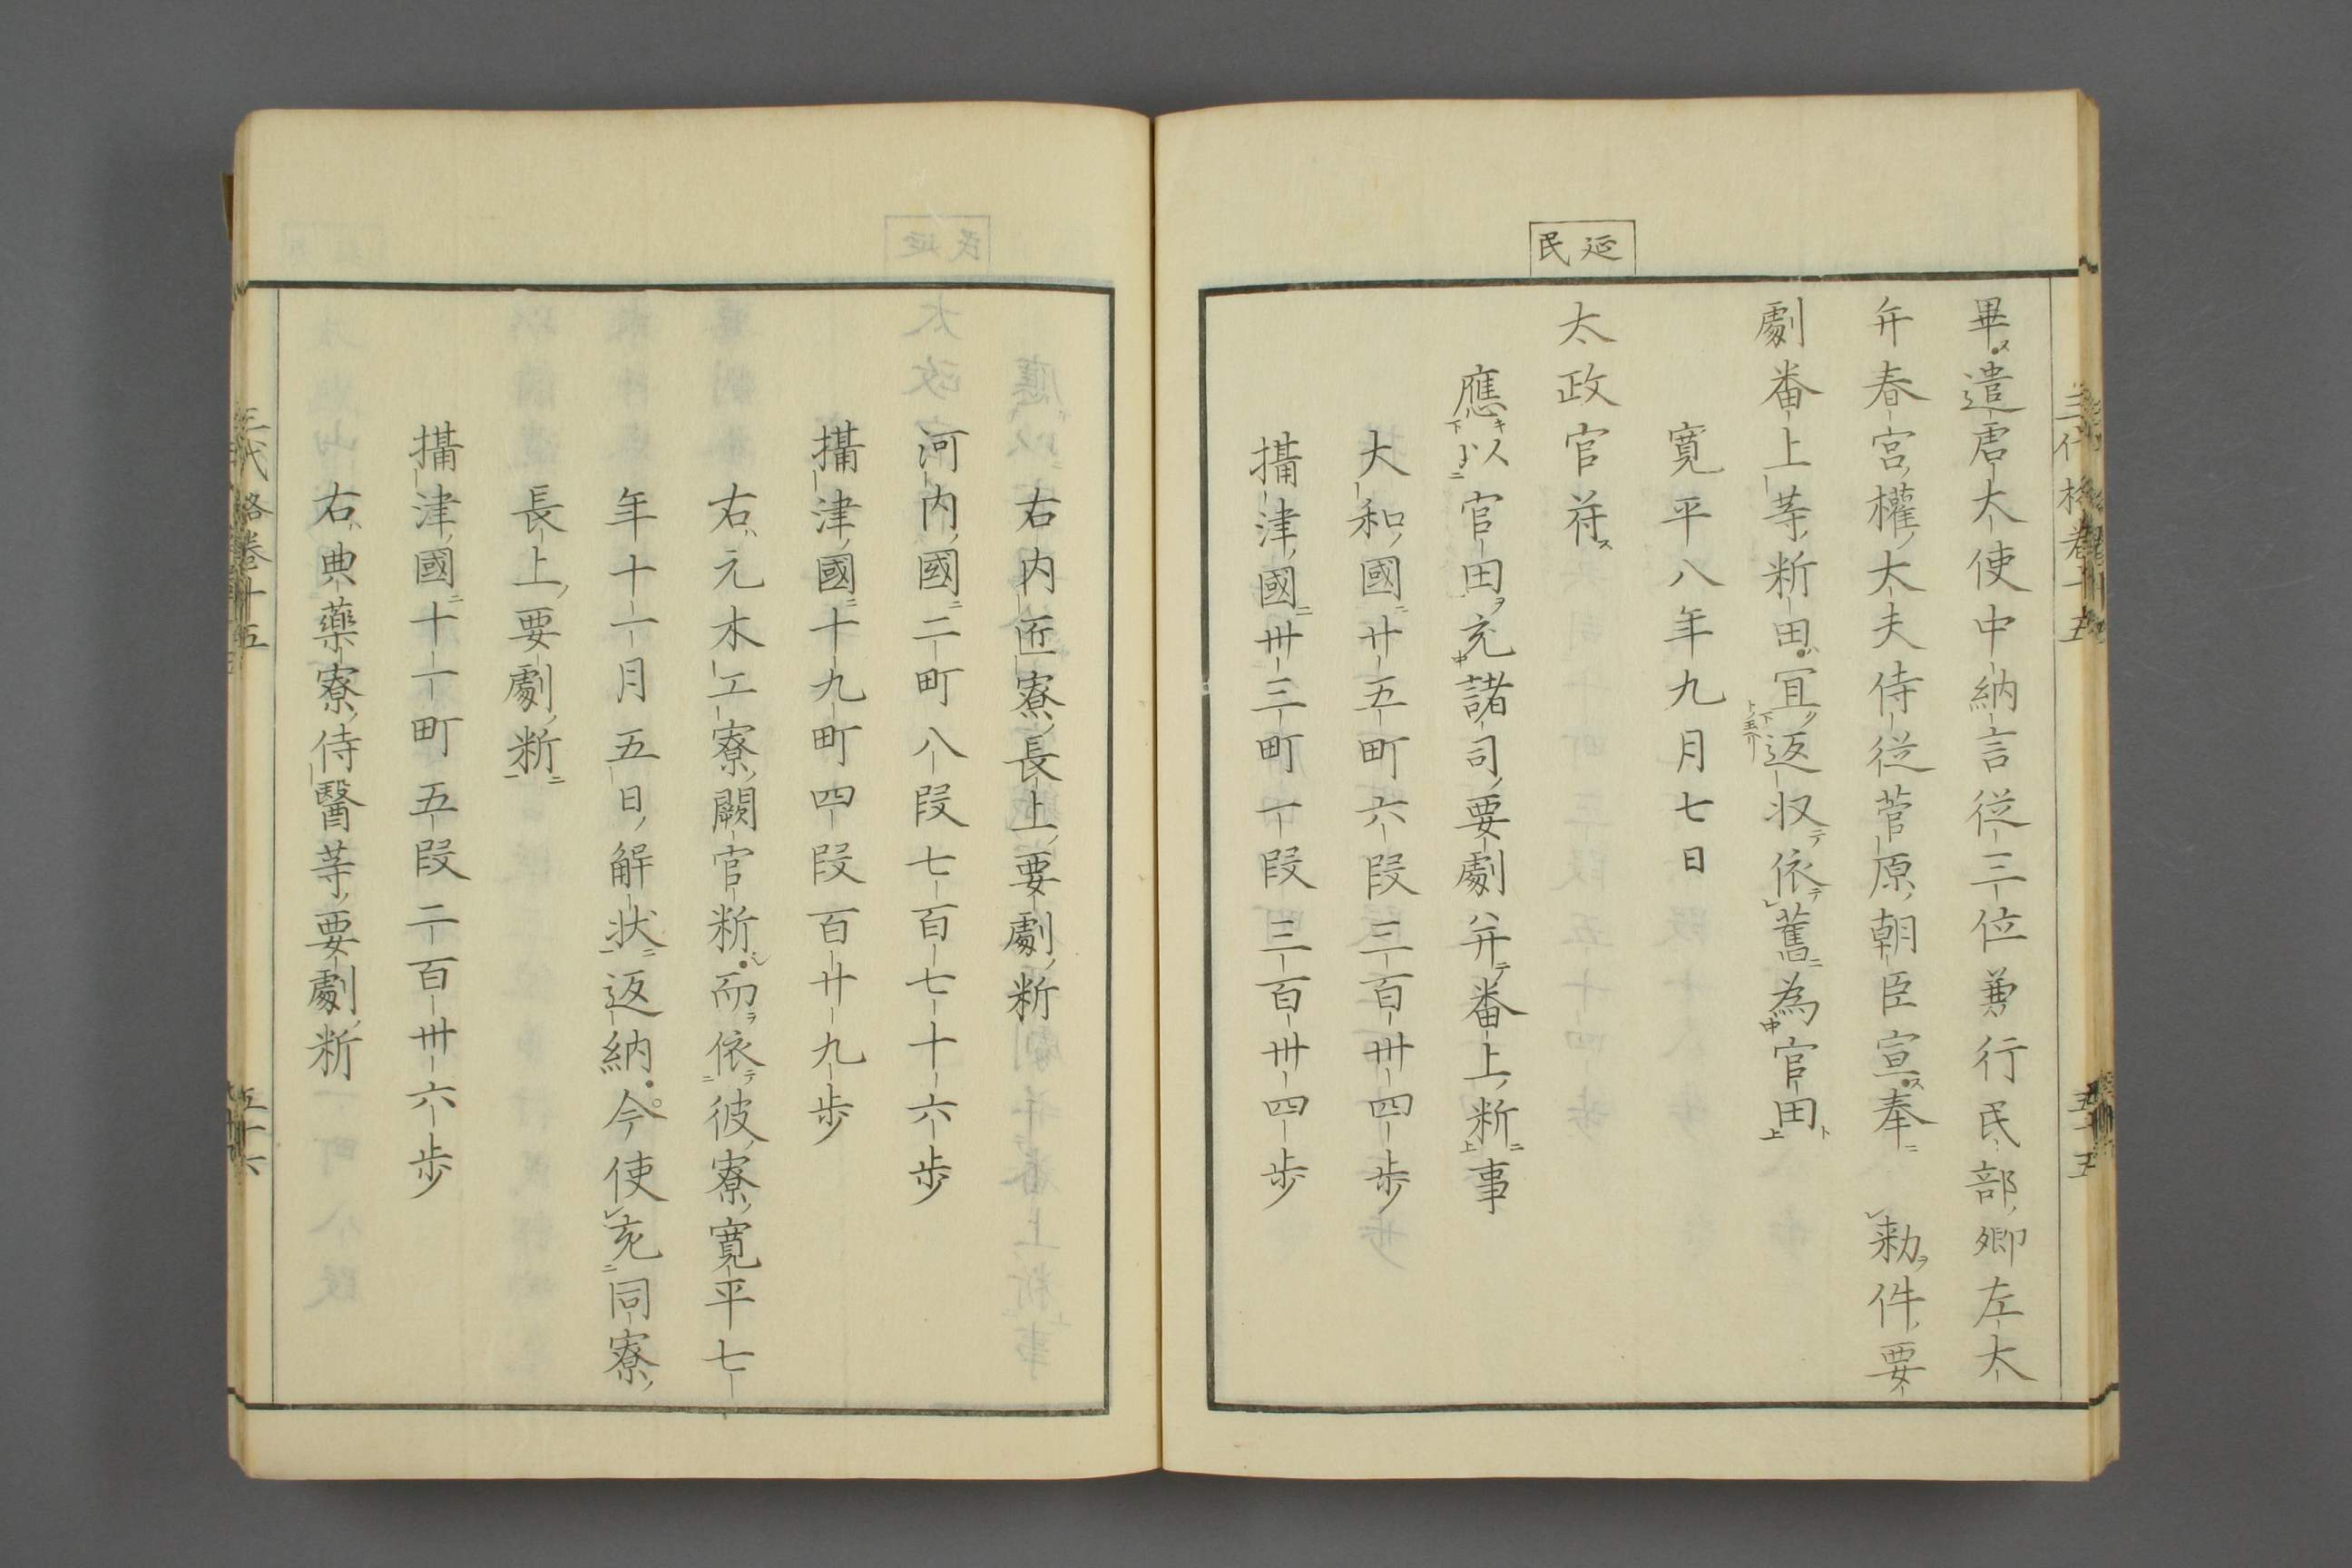 延民
畢遣唐大使中納言従三位兼行民部卿左大
弁春宮權大夫侍従菅原朝臣宣奉　勅件要
劇番上等新田冝返収依舊為官田
寛平八年九月七日
太政官符
應以官田充諸司要劇并番上新事
大和國廿五町六段三百卅四歩
攝津國卅三町一段三百卅四歩
右内匠寮長上要劇新
河内國二町八段七百七十六歩
攝津國十九町四段百廿九歩
右元木工寮闕官新而依彼寮寛平七
年十一月五日解状返納今使充同寮
長上要劇新
攝津國十一町五段二百卅六歩
右典藥寮侍醫等要劇新